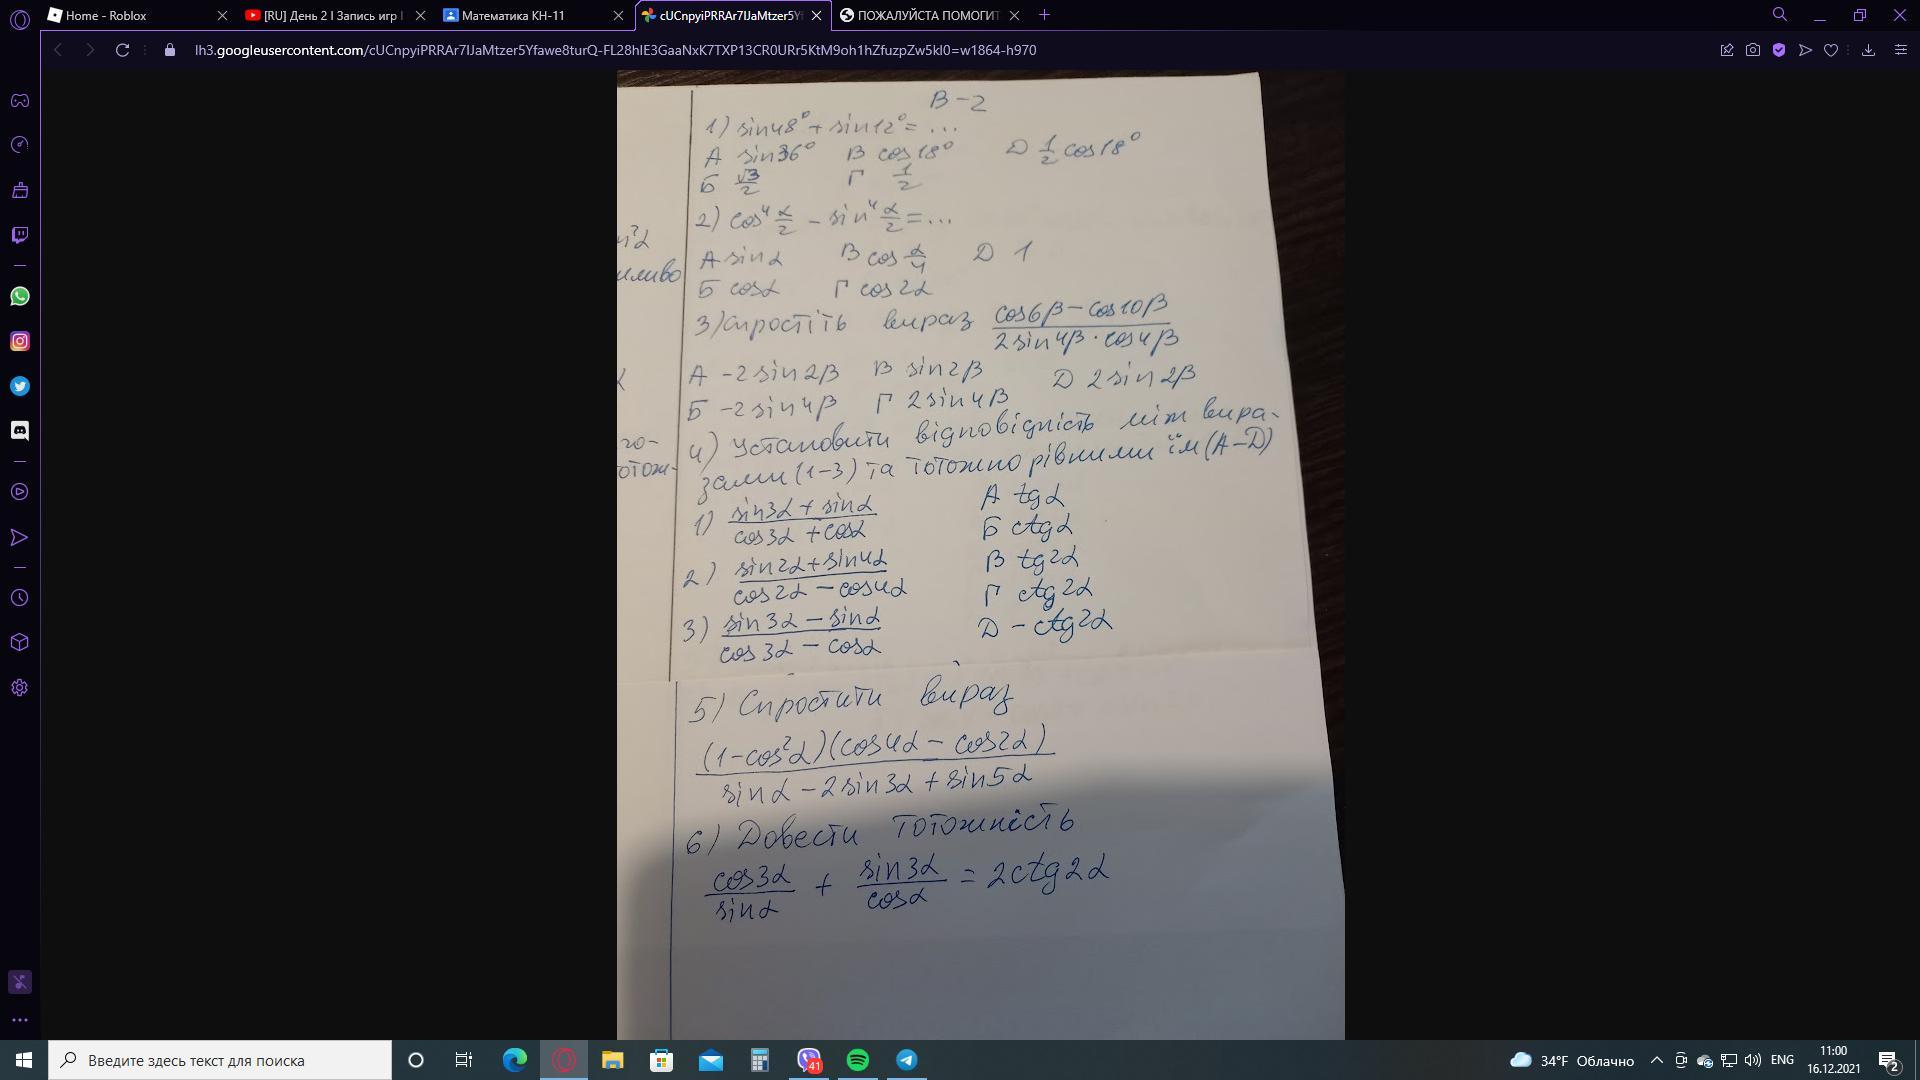 Home - Roblox
[RU] День 2 I Запись игр I
Математика КН-11
cUCnpyiPRRAr7IJaMtzer5Yf
ПОЖАЛУЙСТА ПОМОГИТ
lh3.googleusercontent.com/cUCnpyiPRRAr7IJaMtzer5Yfawe8turQ-FL28hIE3GaaNxK7TXP13CR0URr5KtM9oh1hZfuzpZw5kl0=w1864-h970
В-2
1) sin48° + sin12° = ...
А sin36° В cos18° Д 1/2 cos18°
Б √3/2 Г 1/2
2) cos⁴ α/2 - sin⁴ α/2 = ...
А sinα В cos α/4 Д 1
Б cosα Г cos2α
3) Спростіть вираз (cos6β - cos10β)/(2sin4β · cos4β)
А -2sin2β В sin2β Д 2sin2β
Б -2sin4β Г 2sin4β
4) Установити відповідність між вира-
зами (1-3) та тотожно рівними їм (А-Д)
1) (sin3α + sinα)/(cos3α + cosα) А tgα
Б ctgα
2) (sin2α + sin4α)/(cos2α - cos4α) В tg2α
Г ctg2α
3) (sin3α - sinα)/(cos3α - cosα) Д -ctg2α
5) Спростити вираз
(1-cos²α)(cos4α - cos2α)/(sinα - 2sin3α + sin5α)
6) Довести тотожність
cos3α/sinα + sin3α/cosα = 2ctg2α
Введите здесь текст для поиска
41
34°F Облачно
ENG
11:00
16.12.2021
2